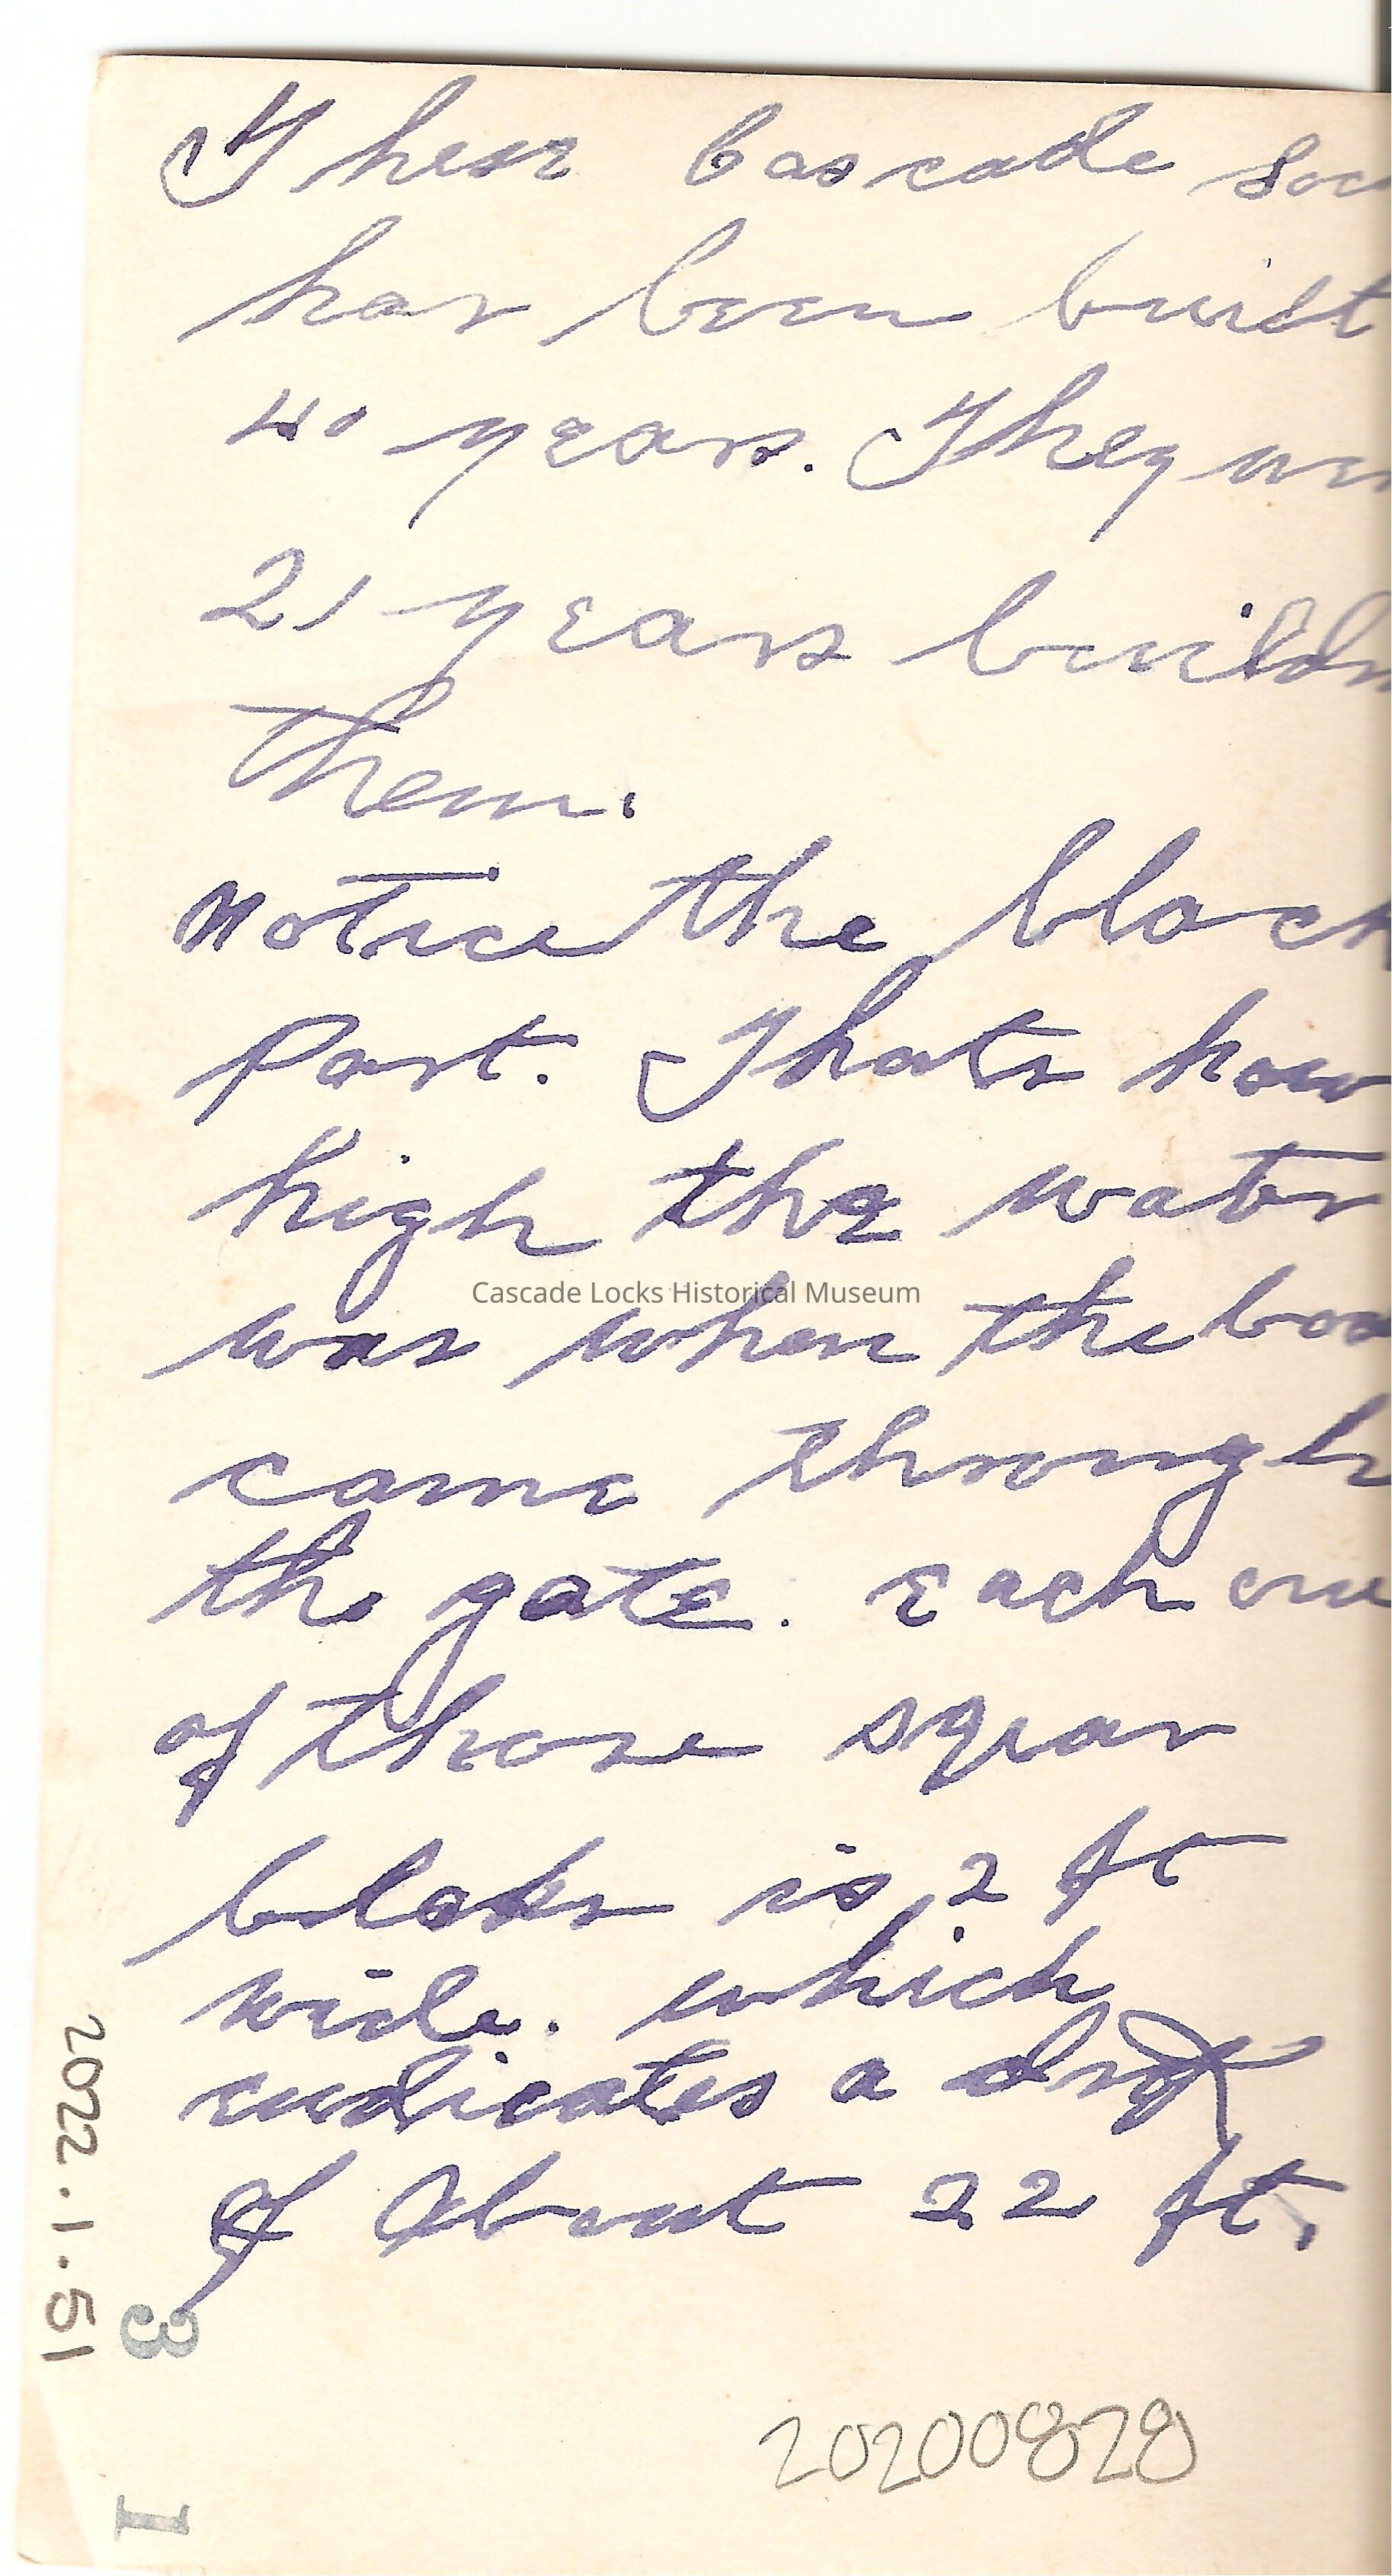 These Cascade Loc
has been built
40 years. They we
21 years buildn
them.
Notice the black
Part. Thats how
high the water
was when the boa
came through
the gate. Each one
of those squar
bloks is 2 ft
wide. which
indicates a drop
of About 22 ft.
Cascade Locks Historical Museum
2022.1.51
3
I
20200828